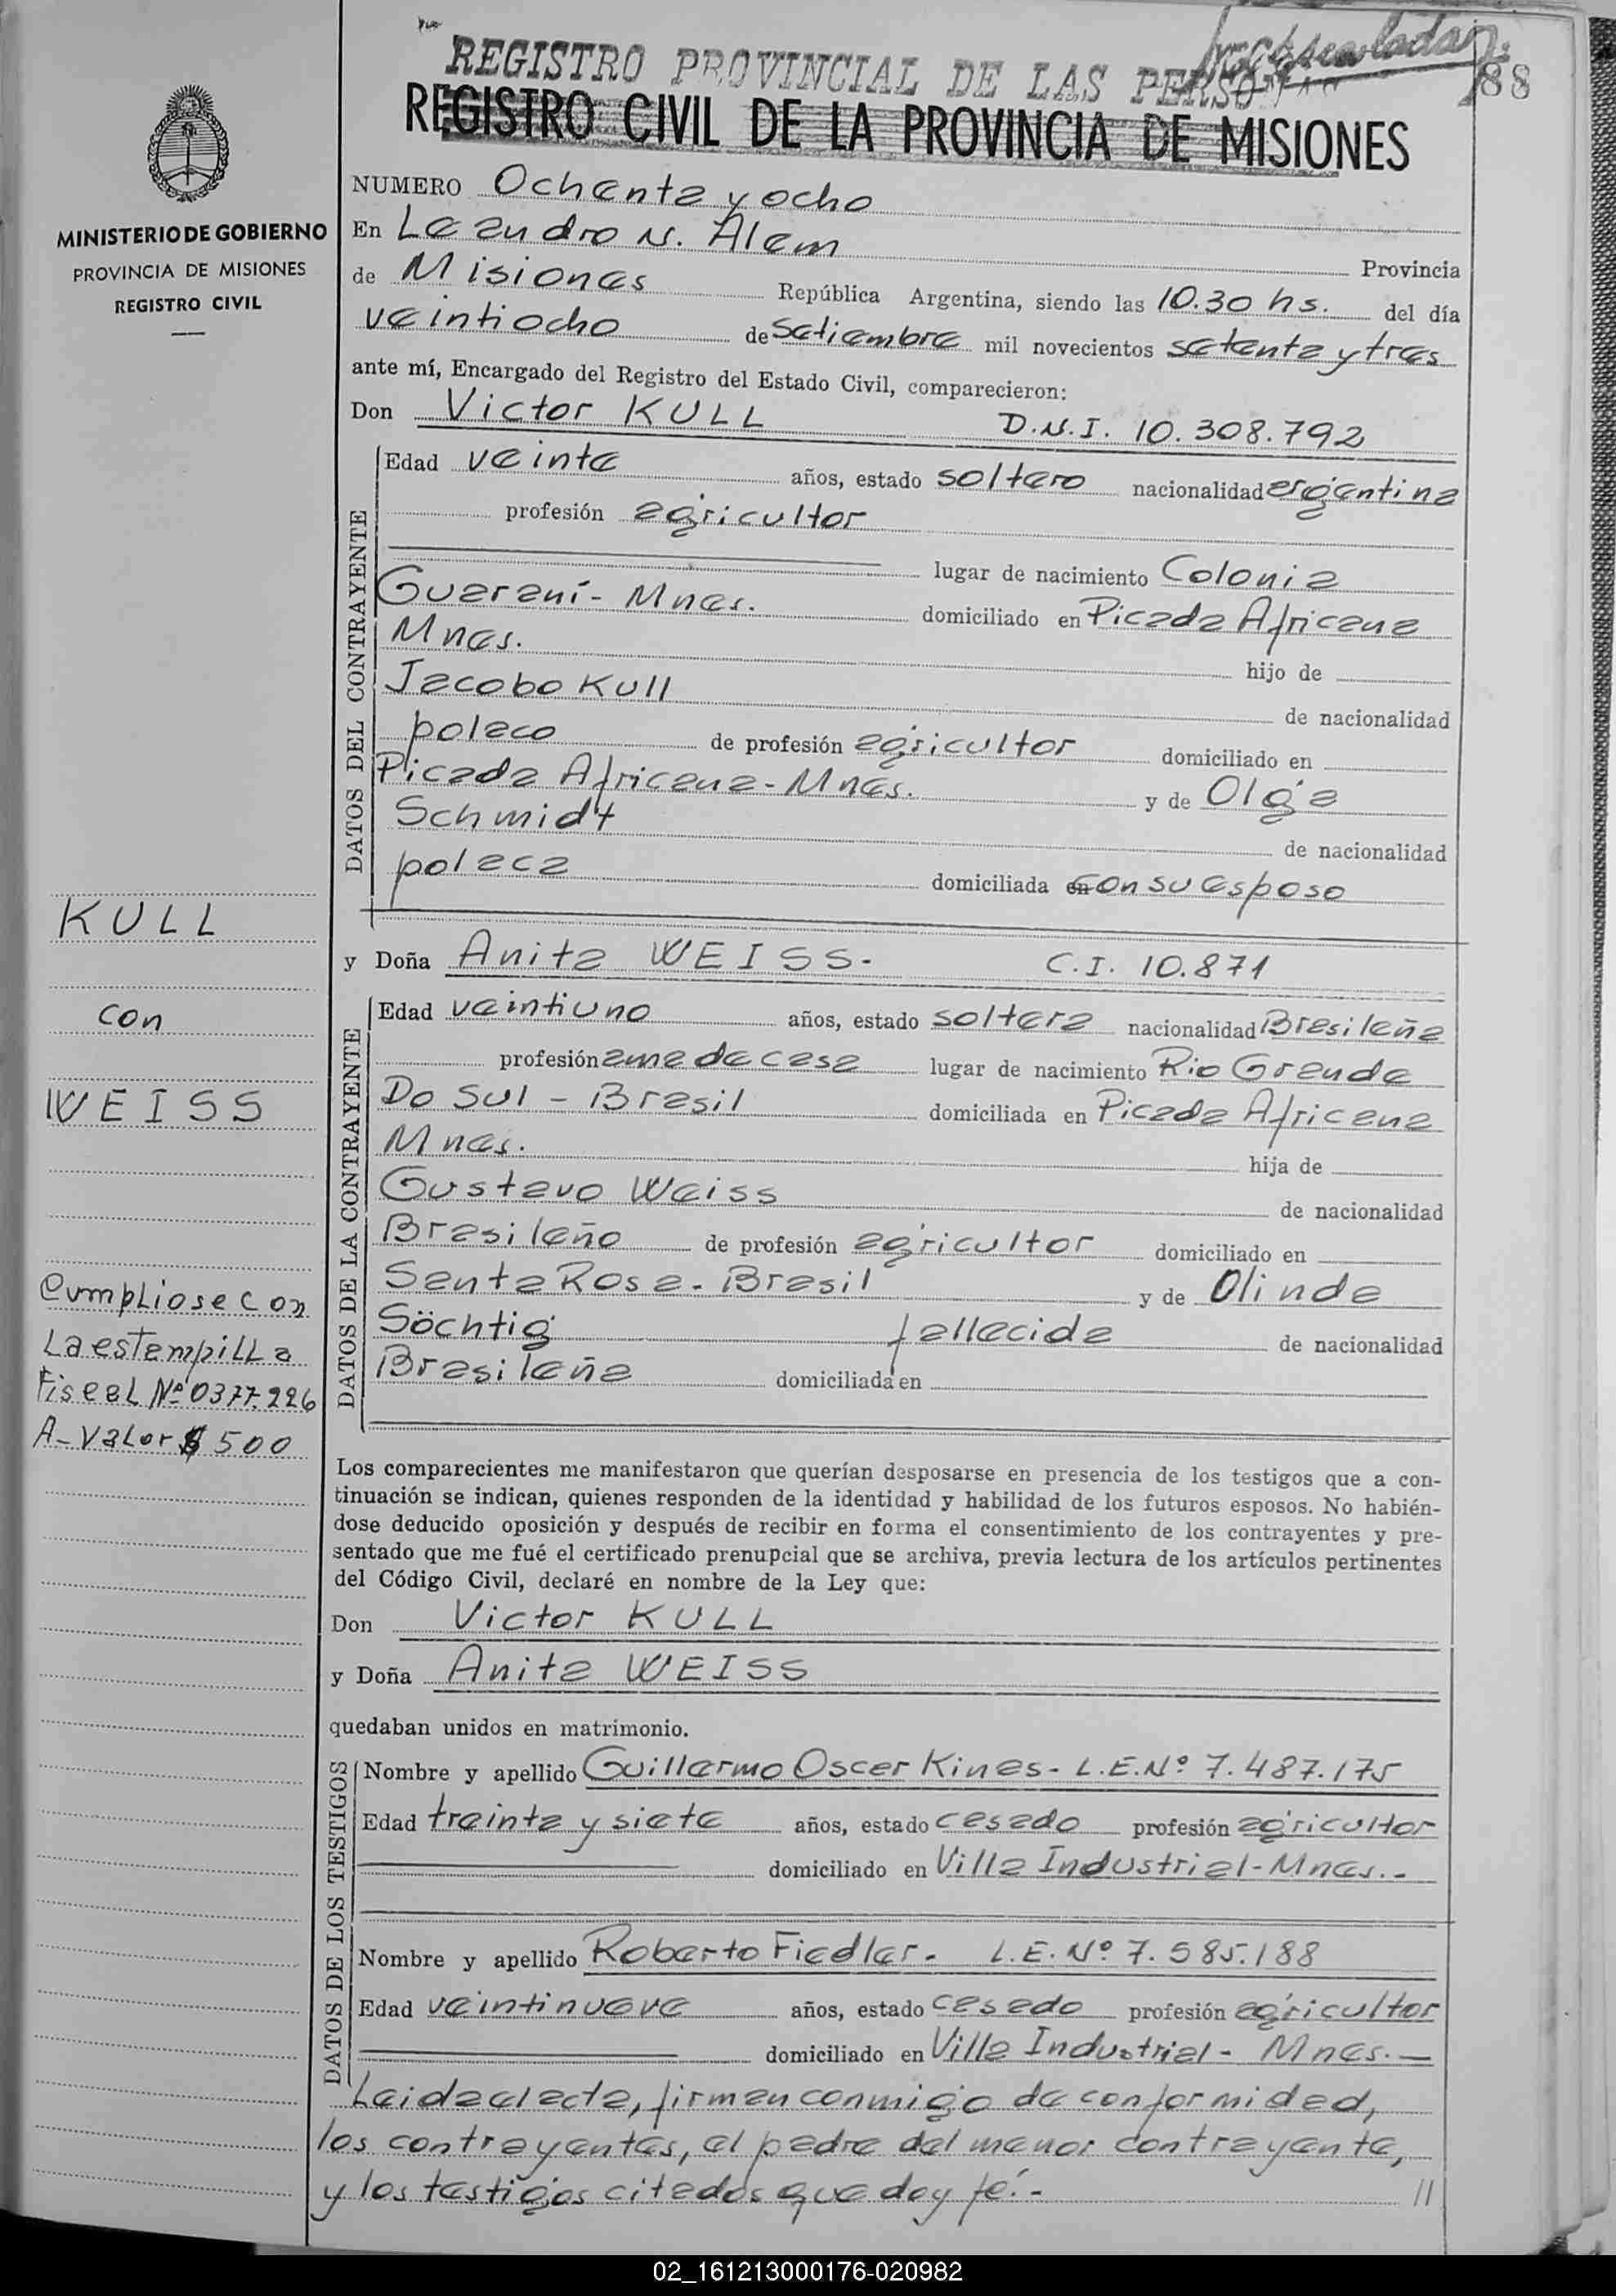 REGISTRO PROVINCIAL DE LAS PERSONAS
88
REGISTRO CIVIL DE LA PROVINCIA DE MISIONES
MINISTERIO DE GOBIERNO
PROVINCIA DE MISIONES
REGISTRO CIVIL
NUMERO Ochenta y ocho
En Leandro N. Alem Provincia
de Misiones República Argentina, siendo las 10.30 hs. del día
veintiocho de Setiembre mil novecientos setenta y tres
ante mí, Encargado del Registro del Estado Civil, comparecieron:
Don Victor KULL D.N.I. 10.308.792
DATOS DEL CONTRAYENTE
Edad veinte años, estado soltero nacionalidad argentina
profesión agricultor
lugar de nacimiento Colonia
Guaraní - Mnes. domiciliado en Picada Africana
Mnes. hijo de
Jacobo Kull de nacionalidad
polaco de profesión agricultor domiciliado en
Picada Africana - Mnes. y de Olga
Schmidt de nacionalidad
polaca domiciliada en con su esposo
KULL
con
WEISS
y Doña Anita WEISS. C.I. 10.871
DATOS DE LA CONTRAYENTE
Edad veintiuno años, estado soltera nacionalidad Brasileña
profesión ama de casa lugar de nacimiento Rio Grande
Do Sul - Brasil domiciliada en Picada Africana
Mnes. hija de
Gustavo Weiss de nacionalidad
Brasileño de profesión agricultor domiciliado en
Santa Rosa - Brasil y de Olinda
Söchtig fallecida de nacionalidad
Brasileña domiciliada en
Cumpliose con
La estampilla
Fiscal Nº 0377.226
A - Valor $ 500
Los comparecientes me manifestaron que querían desposarse en presencia de los testigos que a con-
tinuación se indican, quienes responden de la identidad y habilidad de los futuros esposos. No habién-
dose deducido oposición y después de recibir en forma el consentimiento de los contrayentes y pre-
sentado que me fué el certificado prenupcial que se archiva, previa lectura de los artículos pertinentes
del Código Civil, declaré en nombre de la Ley que:
Don Victor KULL
y Doña Anita WEISS
quedaban unidos en matrimonio.
DATOS DE LOS TESTIGOS
Nombre y apellido Guillermo Oscar Kines - L.E.Nº 7.487.175
Edad treinta y siete años, estado casado profesión agricultor
domiciliado en Villa Industrial - Mnes. -
Nombre y apellido Roberto Fiedler. L.E.Nº 7.585.188
Edad veintinueve años, estado casado profesión agricultor
domiciliado en Villa Industrial - Mnes. -
Leida el acta, firman conmigo de conformidad,
los contrayentes, el padre del menor contrayente,
y los testigos citados que doy fé. - //
02_161213000176-020982